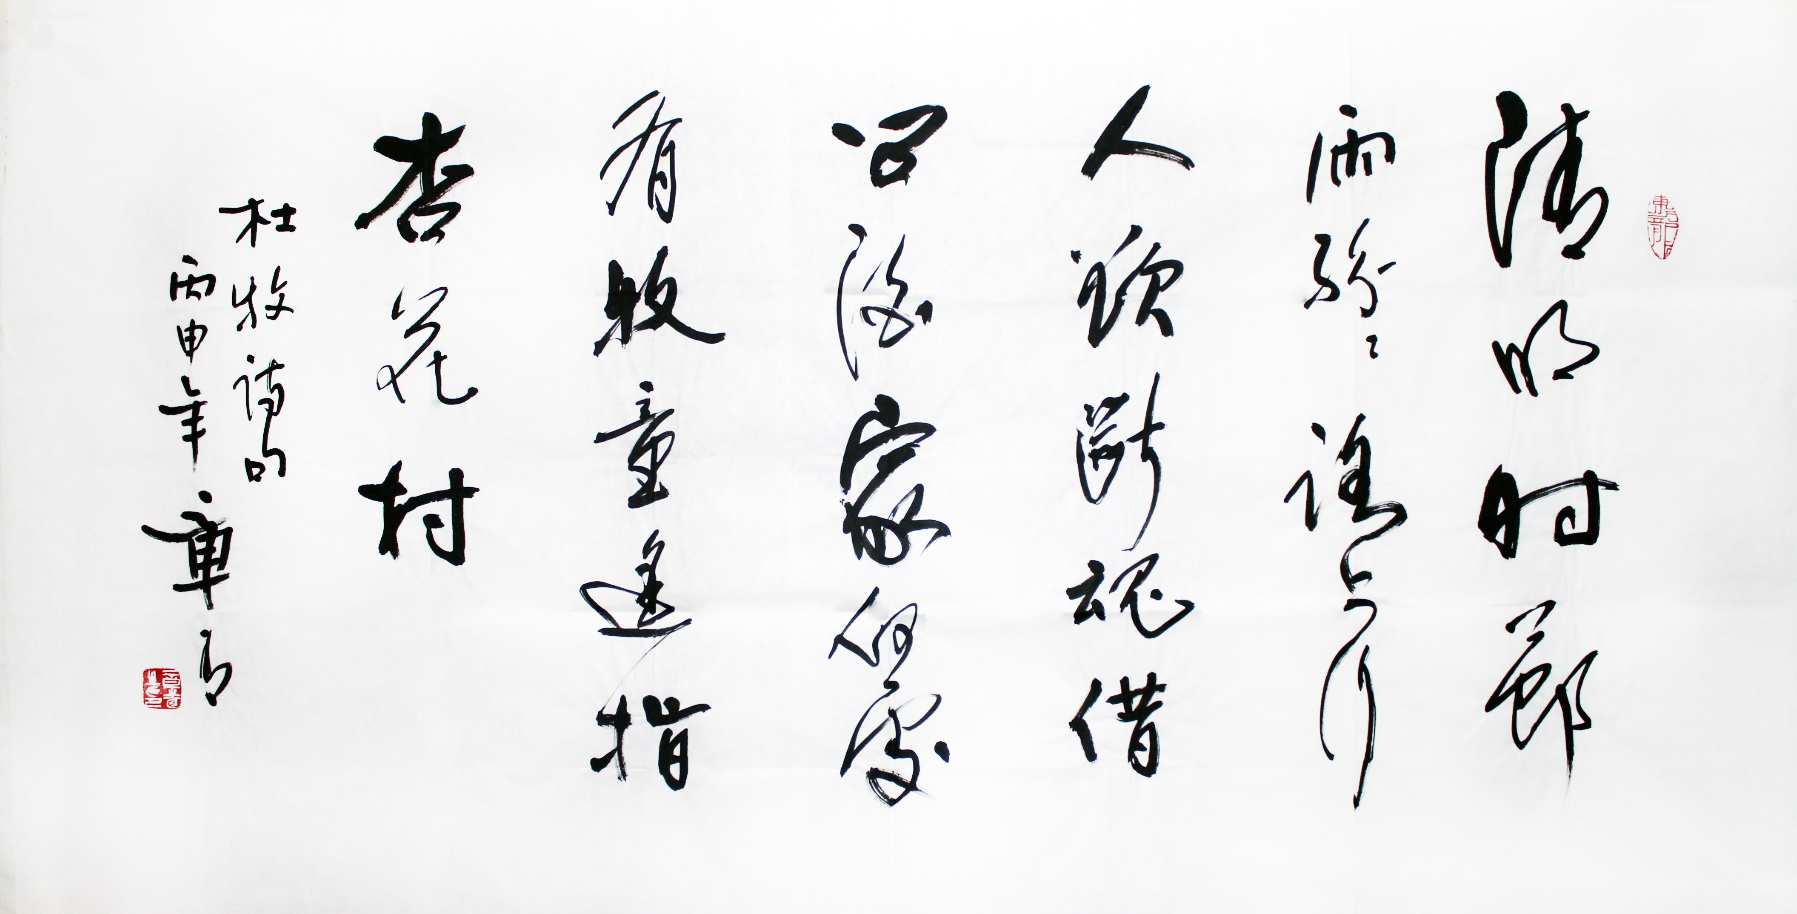 清明时節
雨紛々路上行
人欲斷魂借
问酒家何處
有牧童遥指
杏花村
杜牧诗句
丙申年章